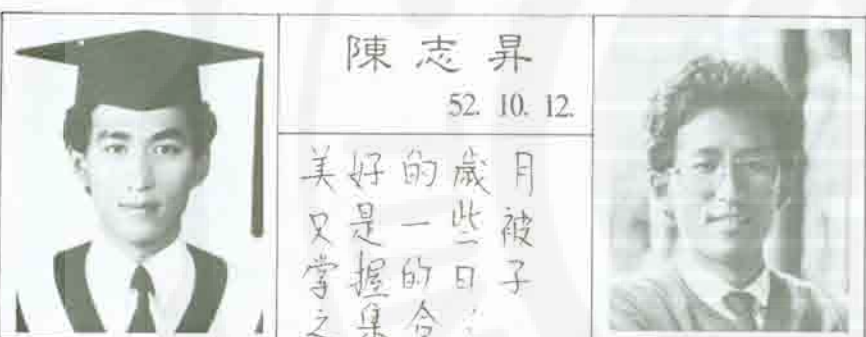 陳志昇
52. 10. 12.
美好的歲月
只是一些被
掌握的日子
之集合